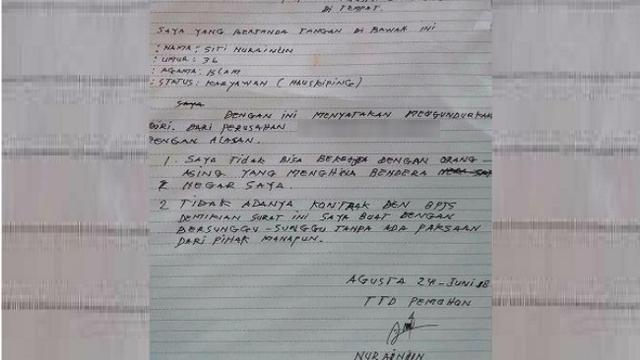 DI TEMPAT.
SAYA YANG BERTANDA TANGAN DI BAWAH INI
: NAMA : SITI NURAINUN
: UMUR : 36
: AGAMA : ISLAM
: STATUS : KARYAWAN ( HAUSKIPING )
SAYA
DENGAN INI MENYATAKAN MENGUNDURKAN
DIRI. DARI PERUSAHAN
DENGAN ALASAN.
1. SAYA TIDAK BISA BEKERJA DENGAN ORANG -
ASING YANG MENGHINA BENDERA
NEGAR SAYA.
2. TIDAK ADANYA. KONTRAK DEN BPJS
DEMIKIAN SURAT INI SAYA BUAT DENGAN
BERSUNGGU - SUNGGU TANPA ADA PAKSAAN
DARI PIHAK MANAPUN.
AGUSTA 24 - JUNI 18
TTD PEMOHON
NURAINUN